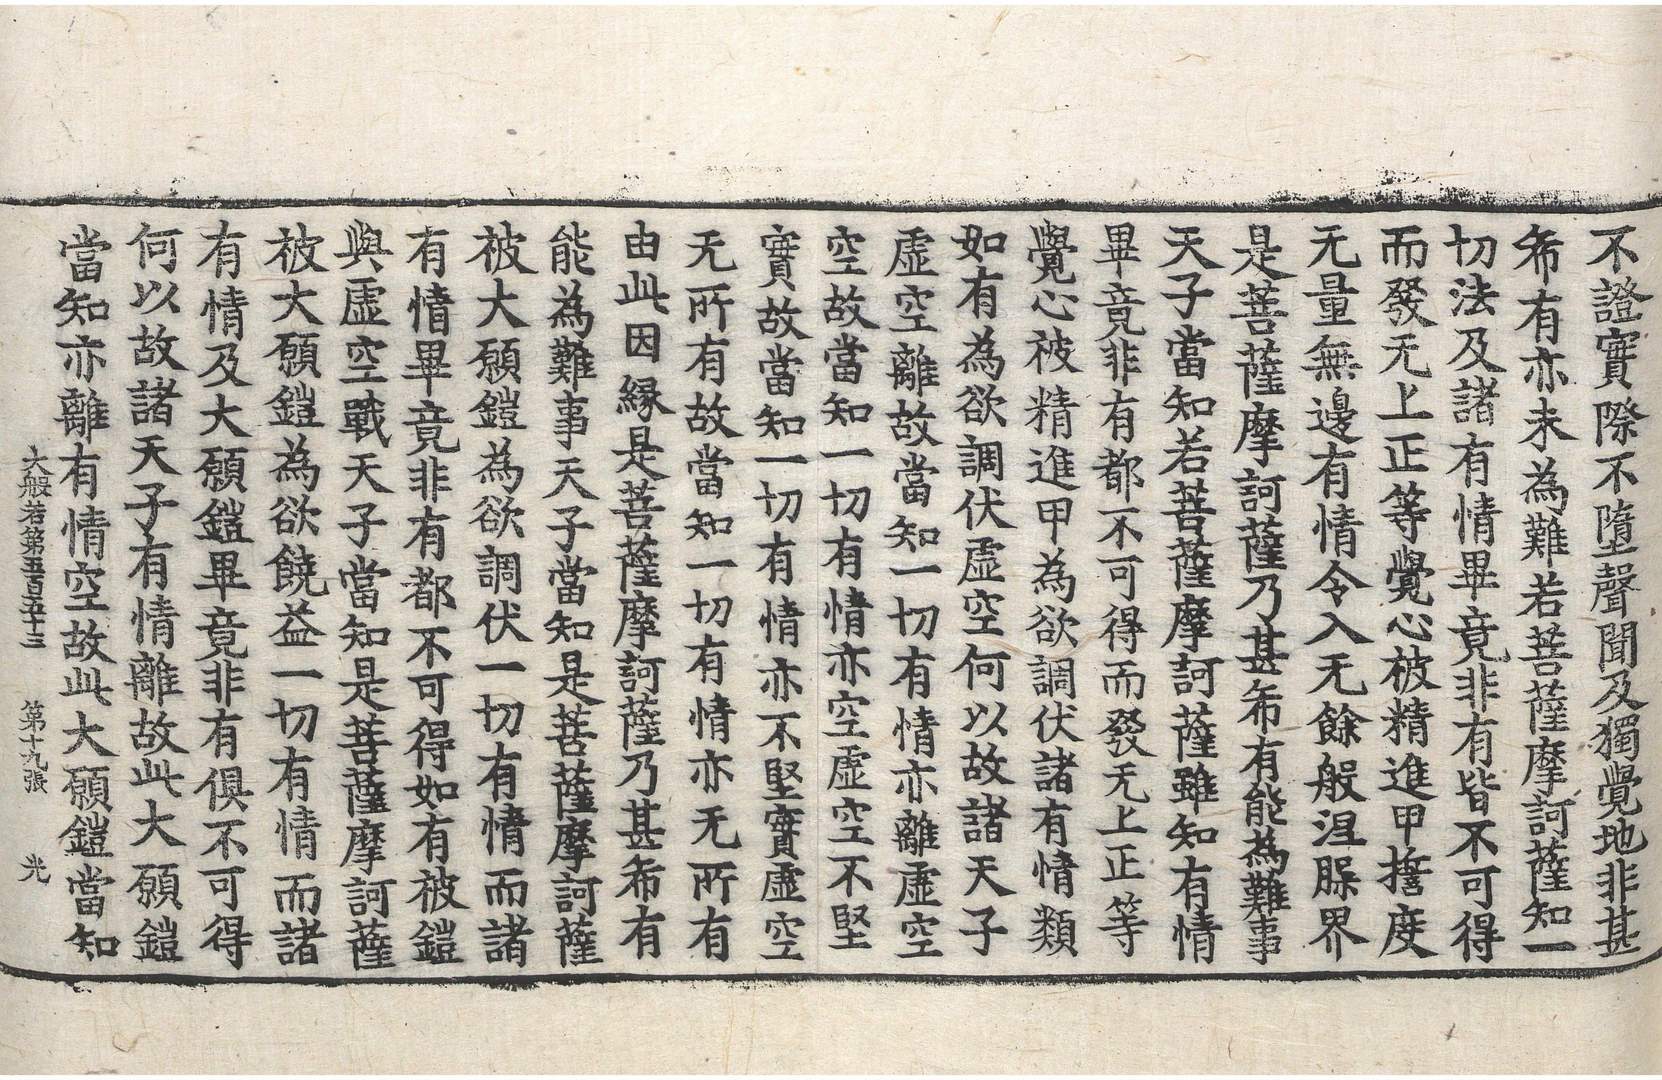 不證實際不墮聲聞及獨覺地非甚
希有亦未為難若菩薩摩訶薩知一
切法及諸有情畢竟非有皆不可得
而發无上正等覺心被精進甲擔度
无量無邊有情令入无餘般涅脲界
是菩薩摩訶薩乃甚希有能為難事
天子當知若菩薩摩訶薩雖知有情
畢竟非有都不可得而發无上正等
覺心被精進甲為欲調伏諸有情類
如有為欲調伏虛空何以故諸天子
虛空離故當知一切有情亦離虛空
空故當知一切有情亦空虛空不堅
實故當知一切有情亦不堅實虛空
无所有故當知一切有情亦无所有
由此因緣是菩薩摩訶薩乃甚希有
能為難事天子當知是菩薩摩訶薩
被大願鎧為欲調伏一切有情而諸
有情畢竟非有都不可得如有被鎧
與虛空戰天子當知是菩薩摩訶薩
被大願鎧為欲饒益一切有情而諸
有情及大願鎧畢竟非有俱不可得
何以故諸天子有情離故此大願鎧
當知亦離有情空故此大願鎧當知
大般若第五百五十三 第十九張 光